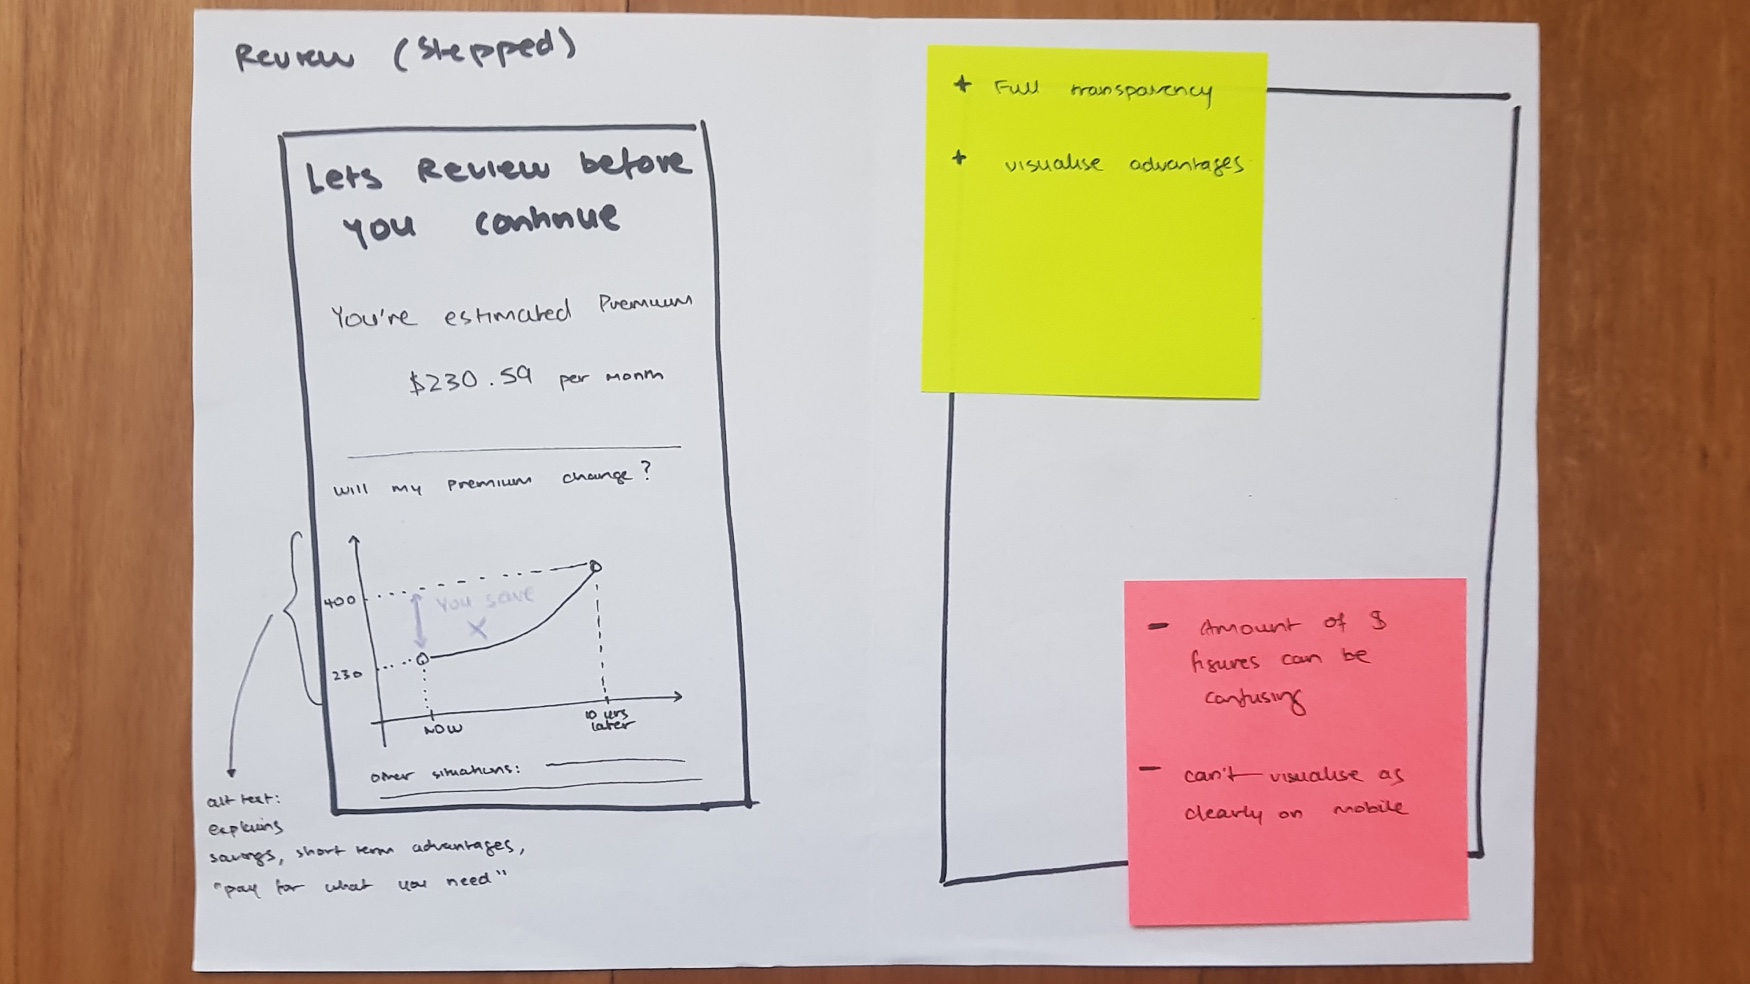 Review (Stepped)
Lets Review before
you continue
You're estimated Premium
$230.59 per month
will my premium change?
400
You save
X
230
NOW
10 yrs
later
other situations:
alt text:
explains
savings, short term advantages,
"pay for what you need"
+ Full transparency
+ visualise advantages
- Amount of $
figures can be
confusing
- can't visualise as
clearly on mobile